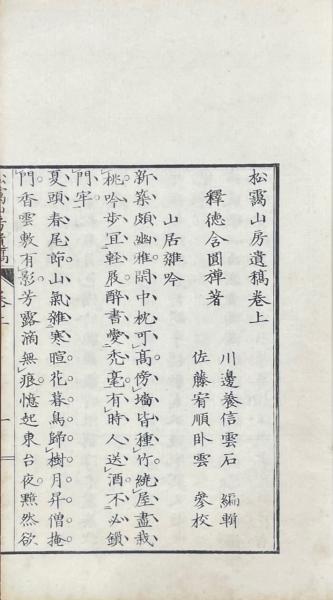 松靄山房遺稿卷上
川邊養信雲石 編輯
釋德含圓禪著
佐藤宥順卧雲 參校
山居雜吟
新築頗幽雅閑中枕可高傍墻皆種竹繞屋盡栽
桃吟步宜輕屐醉書愛禿毫有時人送酒不必鎖
門牢
夏頭春尾節山氣雜寒暄花暮鳥歸樹月昇僧掩
門香雲敷有影芳露滴無痕憶起東台夜黯然欲
卷上
一